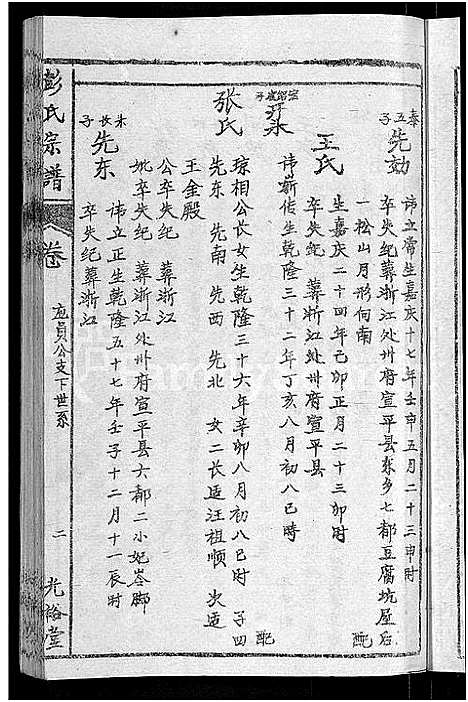 泰五子
先効
諱立常生嘉庆十七年壬申五月二十三申时
卒失纪葬浙江处州府宣平县东乡七都豆腐坑屋后
一松山月形向南 配
王氏
生嘉庆二十四年己卯正月二十三卯时
卒失纪 葬浙江处州府宣平县
諱嶄传生乾隆三十二年丁亥八月初八巳时 配
张氏
琼相公长女生乾隆三十六年辛卯八月初八巳时 子四
先东 先南 先西 先北 女二长适汪祖顺 次适
王金殿
公卒失纪 葬浙江
妣卒失纪 葬浙江处州府宣平县六都二小妃岺脚
长子
先东
諱立正生乾隆五十七年壬子十二月十一辰时
卒失纪葬浙江
彭氏宗譜
卷
应贞公支下世系
二
光裕堂